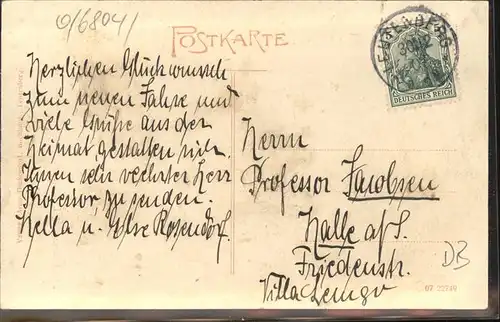 0/6804
POSTKARTE
Herzlichen Glückwunsch
zum neuen Jahre und
viele Grüße aus der
Heimat, gestatten sich
Ihnen sehr verehrter Herr
Professor zu senden.
Hella u. Else Rosendorf.
DEUTSCHES REICH
Herrn
Professor Jacobsen
Halle a/S.
Friedenstr.
Villa Lemgo
DB
07 22398